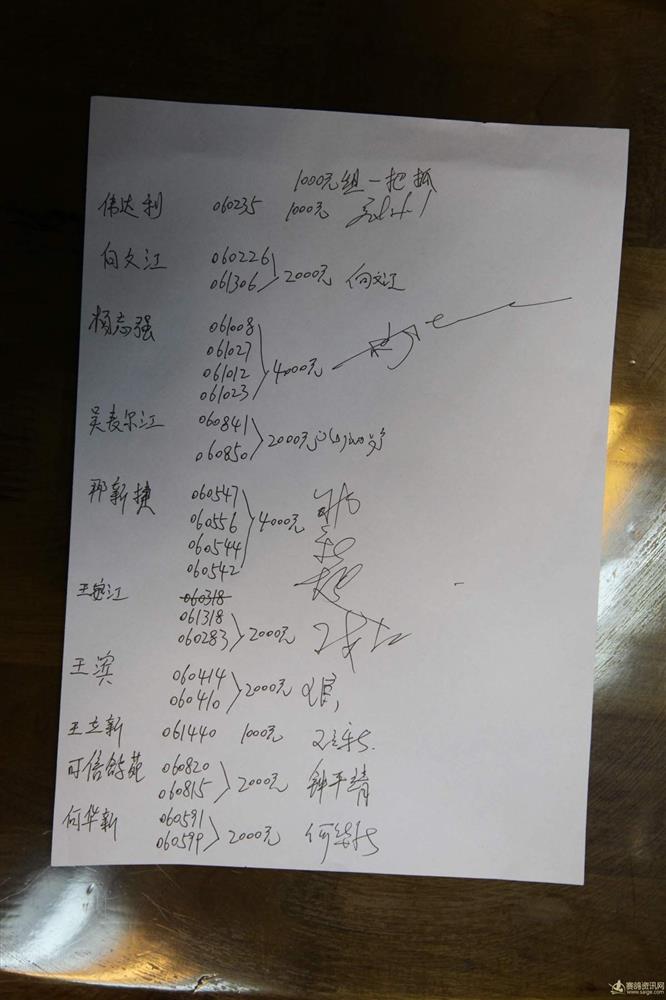 1000元组一把抓
伟达利 060235 1000元
向文江 060226
061306 2000元 向文江
杨志强 061008
061027
061012 4000元
061023
吴麦尔江 060841
060850 2000元
邢新捷 060547
060556 4000元
060544
060542
王安江 060318
061318
060283 2000元
王滨 060414
060410 2000元 王滨
王立新 061440 1000元 王立新
可信鸽苑 060820
060815 2000元 钟平靖
何华新 060591
060599 2000元 何华新
赛鸽资讯网
www.saige.com